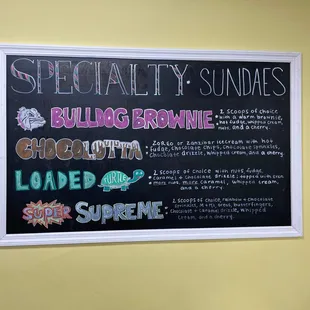 SPECIALTY · SUNDAES
BULLDOG BROWNIE
2 scoops of choice
with a warm brownie,
hot fudge, whipped cream,
nuts, and a cherry.
CHOCOLOTTA
Zanzibar icecream with hot
fudge, chocolate chips, chocolate sprinkles,
chocolate drizzle, whipped cream, and a cherry.
LOADED TURTLE
2 scoops of choice with nuts, fudge,
caramel + chocolate drizzle; topped with even
more nuts, more caramel, whipped cream,
and a cherry.
SUPER SUPREME
2 scoops of choice, rainbow + chocolate
sprinkles, m+ms, oreos, butterfingers,
chocolate + caramel drizzle, whipped
cream, and a cherry.